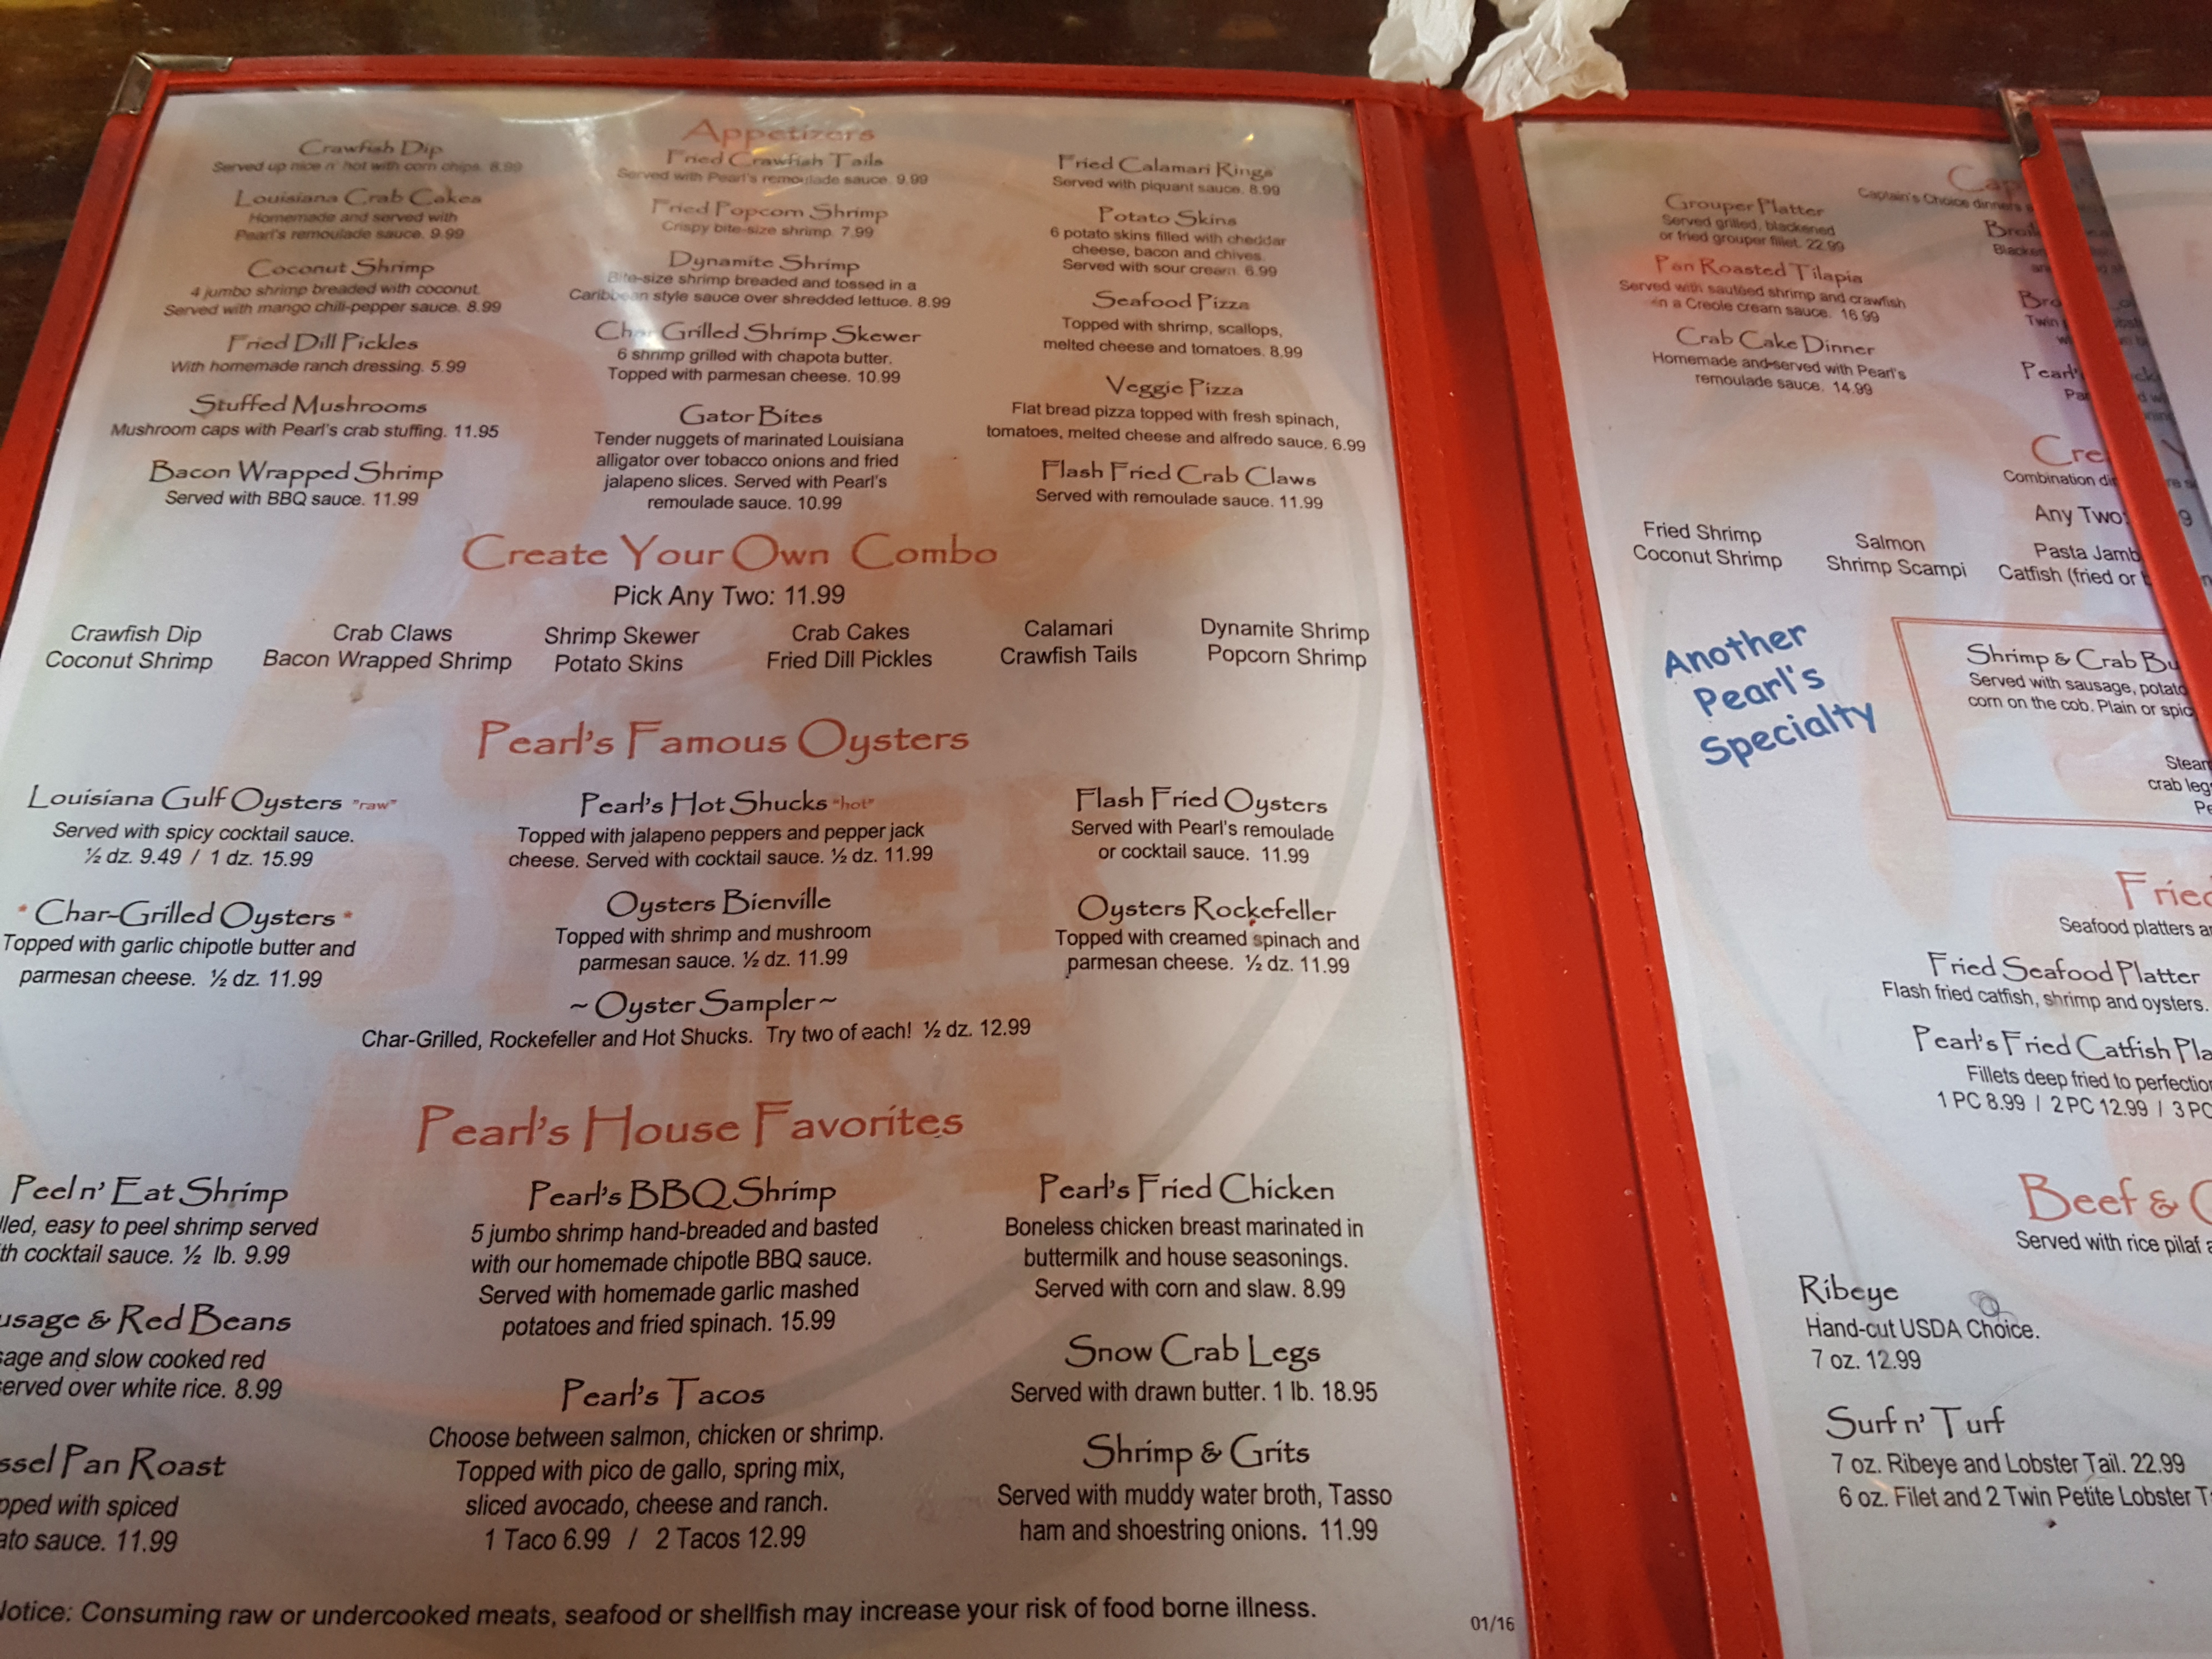 Appetizers
Crawfish Dip
Served up nice n' hot with corn chips. 8.99
Louisiana Crab Cakes
Homemade and served with
Pearl's remoulade sauce. 9.99
Coconut Shrimp
4 jumbo shrimp breaded with coconut.
Served with mango chili-pepper sauce. 8.99
Fried Dill Pickles
With homemade ranch dressing. 5.99
Stuffed Mushrooms
Mushroom caps with Pearl's crab stuffing. 11.95
Bacon Wrapped Shrimp
Served with BBQ sauce. 11.99
Fried Crawfish Tails
Served with Pearl's remoulade sauce. 9.99
Fried Popcorn Shrimp
Crispy bite-size shrimp. 7.99
Dynamite Shrimp
Bite-size shrimp breaded and tossed in a
Caribbean style sauce over shredded lettuce. 8.99
Char Grilled Shrimp Skewer
6 shrimp grilled with chapota butter.
Topped with parmesan cheese. 10.99
Gator Bites
Tender nuggets of marinated Louisiana
alligator over tobacco onions and fried
jalapeno slices. Served with Pearl's
remoulade sauce. 10.99
Fried Calamari Rings
Served with piquant sauce. 8.99
Potato Skins
6 potato skins filled with cheddar
cheese, bacon and chives.
Served with sour cream. 6.99
Seafood Pizza
Topped with shrimp, scallops,
melted cheese and tomatoes. 8.99
Veggie Pizza
Flat bread pizza topped with fresh spinach,
tomatoes, melted cheese and alfredo sauce. 6.99
Flash Fried Crab Claws
Served with remoulade sauce. 11.99
Create Your Own Combo
Pick Any Two: 11.99
Crawfish Dip Crab Claws Shrimp Skewer Crab Cakes Calamari Dynamite Shrimp
Coconut Shrimp Bacon Wrapped Shrimp Potato Skins Fried Dill Pickles Crawfish Tails Popcorn Shrimp
Pearl's Famous Oysters
Louisiana Gulf Oysters "raw"
Served with spicy cocktail sauce.
½ dz. 9.49 / 1 dz. 15.99
* Char-Grilled Oysters *
Topped with garlic chipotle butter and
parmesan cheese. ½ dz. 11.99
Pearl's Hot Shucks "hot"
Topped with jalapeno peppers and pepper jack
cheese. Served with cocktail sauce. ½ dz. 11.99
Oysters Bienville
Topped with shrimp and mushroom
parmesan sauce. ½ dz. 11.99
Flash Fried Oysters
Served with Pearl's remoulade
or cocktail sauce. 11.99
Oysters Rockefeller
Topped with creamed spinach and
parmesan cheese. ½ dz. 11.99
~ Oyster Sampler ~
Char-Grilled, Rockefeller and Hot Shucks. Try two of each! ½ dz. 12.99
Pearl's House Favorites
Peel n' Eat Shrimp
lled, easy to peel shrimp served
th cocktail sauce. ½ lb. 9.99
usage & Red Beans
sage and slow cooked red
served over white rice. 8.99
ssel Pan Roast
pped with spiced
ato sauce. 11.99
Pearl's BBQ Shrimp
5 jumbo shrimp hand-breaded and basted
with our homemade chipotle BBQ sauce.
Served with homemade garlic mashed
potatoes and fried spinach. 15.99
Pearl's Tacos
Choose between salmon, chicken or shrimp.
Topped with pico de gallo, spring mix,
sliced avocado, cheese and ranch.
1 Taco 6.99 / 2 Tacos 12.99
Pearl's Fried Chicken
Boneless chicken breast marinated in
buttermilk and house seasonings.
Served with corn and slaw. 8.99
Snow Crab Legs
Served with drawn butter. 1 lb. 18.95
Shrimp & Grits
Served with muddy water broth, Tasso
ham and shoestring onions. 11.99
Notice: Consuming raw or undercooked meats, seafood or shellfish may increase your risk of food borne illness.
01/16
Cap
Captain's Choice dinners
Grouper Platter
Served grilled, blackened
or fried grouper fillet. 22.99
Pan Roasted Tilapia
Served with sautéed shrimp and crawfish
in a Creole cream sauce. 16.99
Crab Cake Dinner
Homemade and served with Pearl's
remoulade sauce. 14.99
Broil
Blacken
Bro
Twin
Pearl's
Pa
Cre
Combination di
Any Two:
Fried Shrimp Salmon Pasta Jamb
Coconut Shrimp Shrimp Scampi Catfish (fried or b
Another
Pearl's
Specialty
Shrimp & Crab Bu
Served with sausage, potato
corn on the cob. Plain or spic
Steam
crab leg
Pe
Fried
Seafood platters a
Fried Seafood Platter
Flash fried catfish, shrimp and oysters.
Pearl's Fried Catfish Pla
Fillets deep fried to perfectio
1 PC 8.99 / 2 PC 12.99 / 3 PC
Beef & C
Served with rice pilaf a
Ribeye
Hand-cut USDA Choice.
7 oz. 12.99
Surf n' Turf
7 oz. Ribeye and Lobster Tail. 22.99
6 oz. Filet and 2 Twin Petite Lobster T